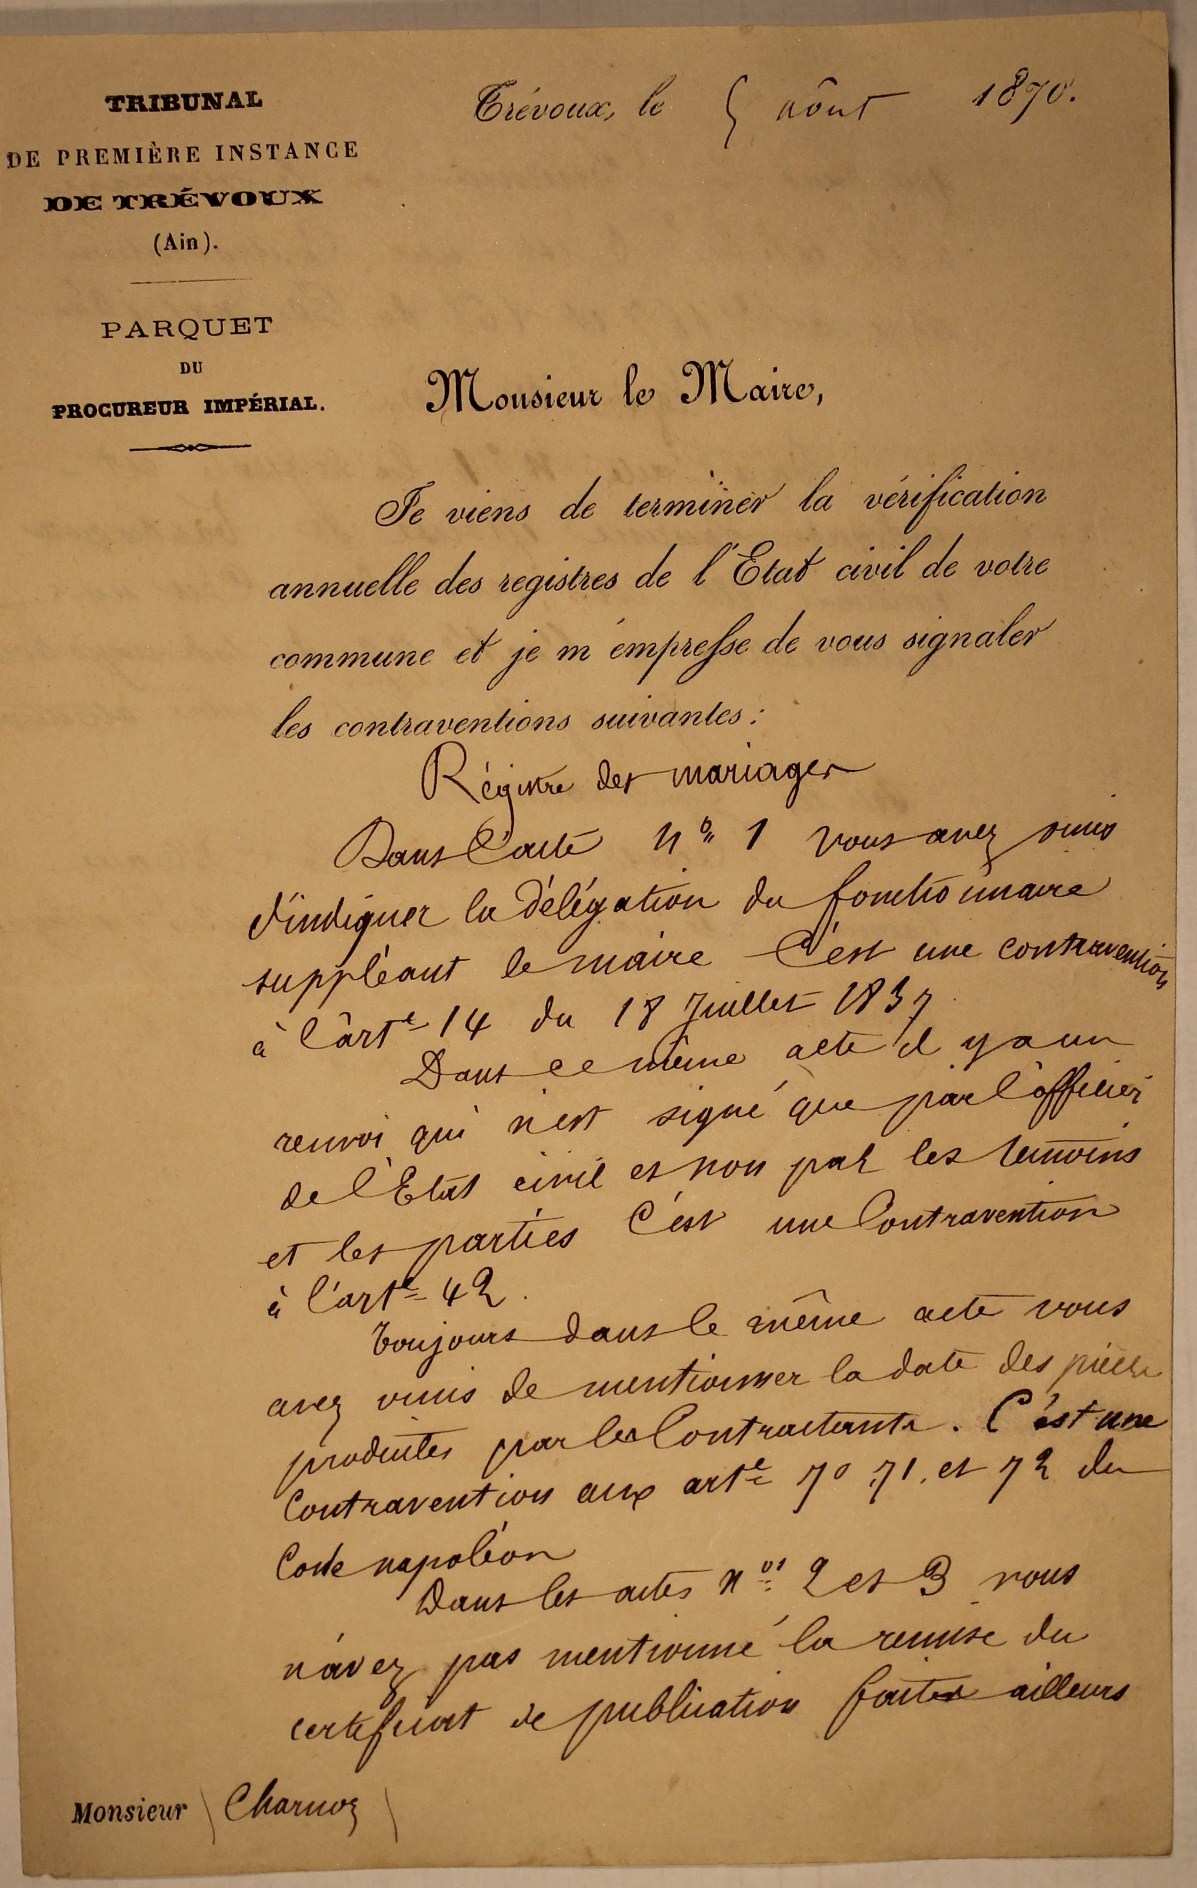 TRIBUNAL
DE PREMIÈRE INSTANCE
DE TRÉVOUX
(Ain).
PARQUET
DU
PROCUREUR IMPÉRIAL.
Trévoux, le 5 août 1870.
Monsieur le Maire,
Je viens de terminer la vérification
annuelle des registres de l'Etat civil de votre
commune et je m'empresse de vous signaler
les contraventions suivantes :
Régistre des mariages
Dans l'acte n° 1 vous avez omis
d'indiquer la délégation du fonctionnaire
suppléant le maire C'est une contravention
à l'arte 14 du 18 Juillet 1837
Dans ce même acte il y a un
renvoi qui n'est signé que par l'officier
de l'Etat civil et non par les temoins
et les parties C'est une Contravention
à l'arte 42.
Toujours dans le même acte vous
avez omis de mentionner la date des pièces
produites par les Contractants. C'est une
Contravention aux arte 70. 71. et 72 du
Code napoléon
Dans les actes nos 2 et 3 vous
n'avez pas mentionné la remise du
certificat de publication faites ailleurs
Monsieur Charnoz